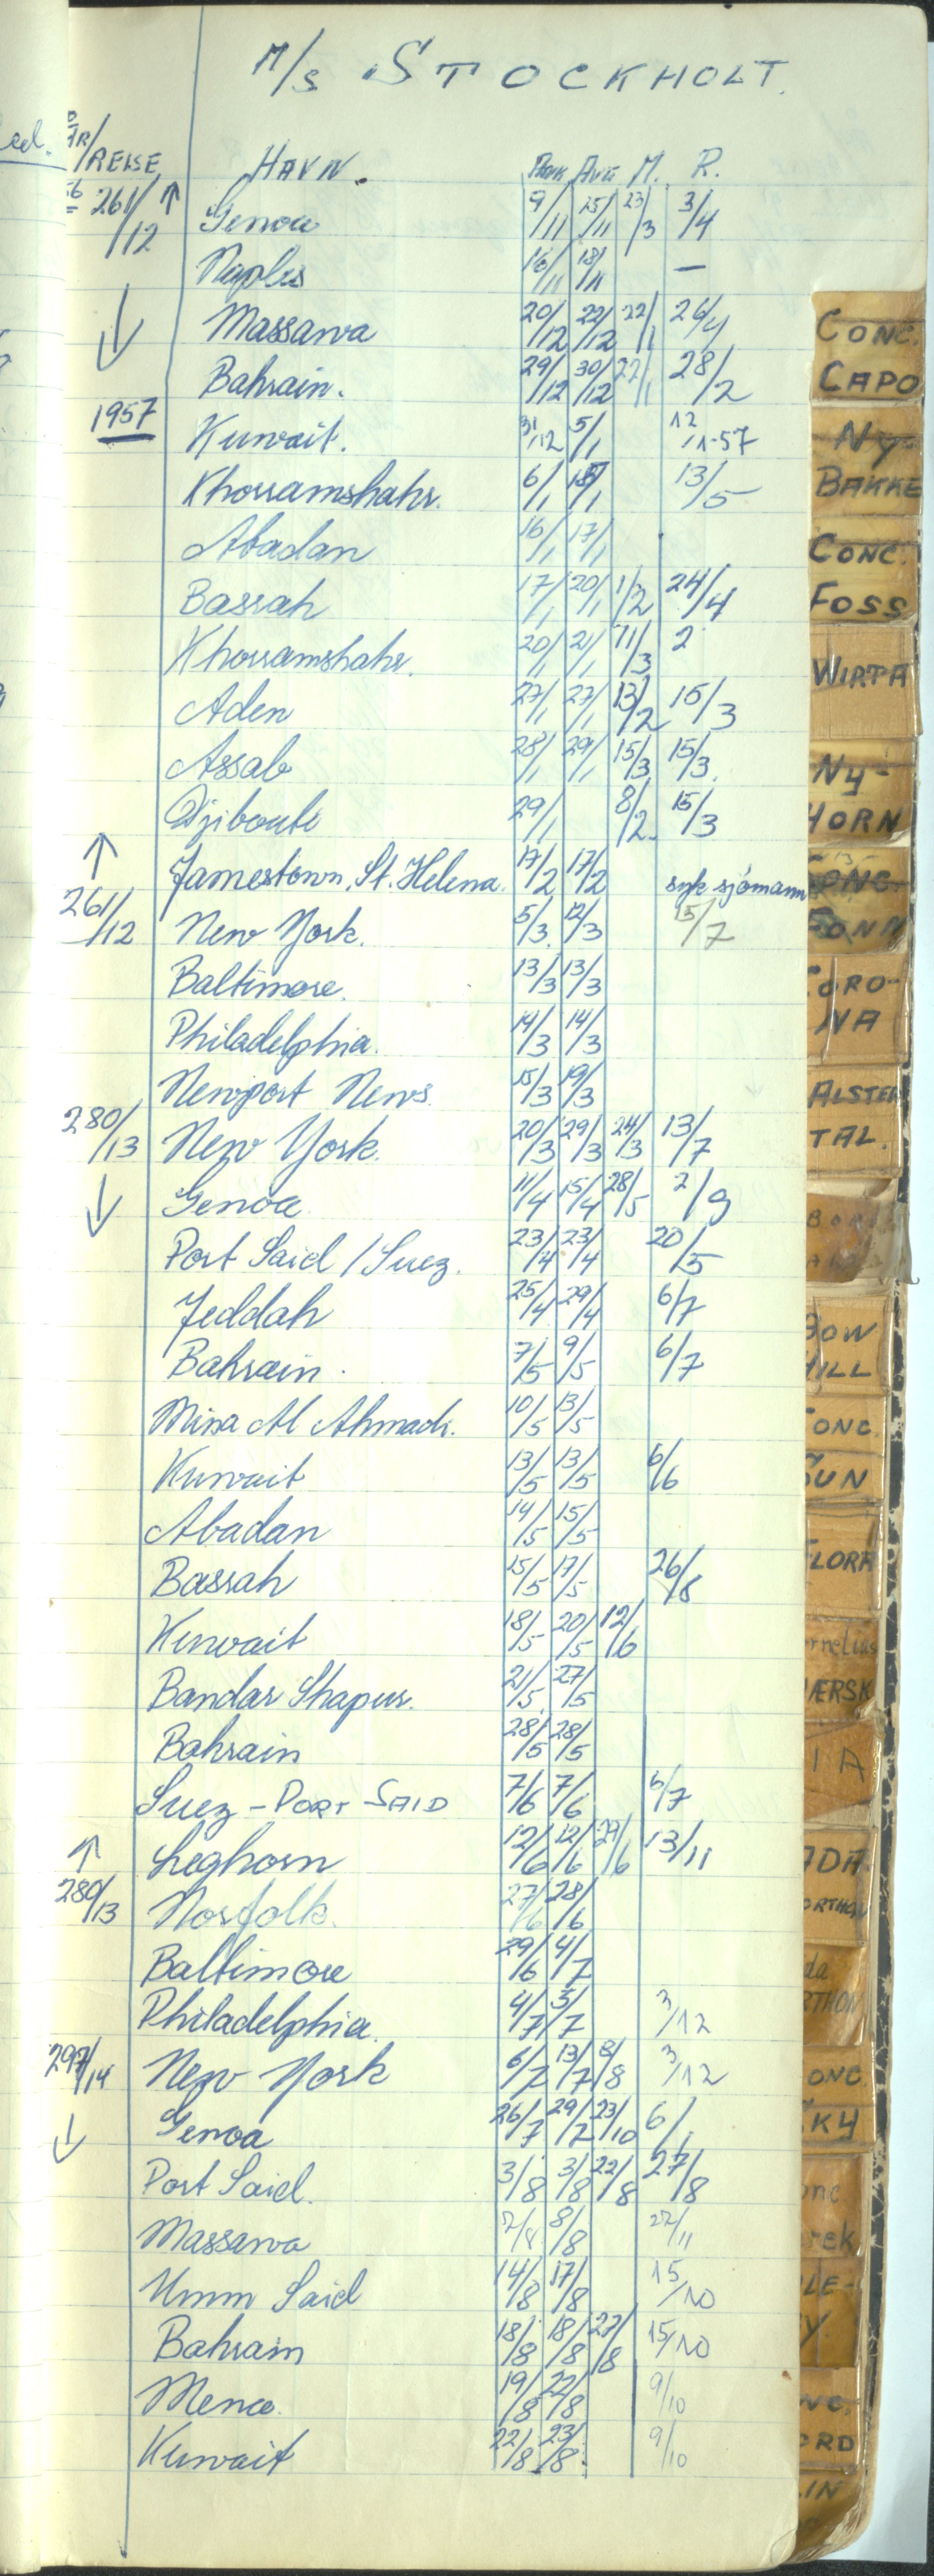 M/S STOCKHOLT.
ÅR/REISE HAVN. Ank Avg M. R.
56 261/12 ↑ Genoa 9/11 15/11 23/3 3/4
Naples 16/11 18/11 —
↓ Massawa 20/12 22/12 22/1 26/4
Bahrain. 29/12 30/12 22/1 28/2
1957 Kuwait. 31/12 5/1 12/11-57
Khorramshahr. 6/1 13/5
Abadan 16/1 17/1
Basrah 17/1 20/1 1/2 24/4
Khorramshahr. 20/1 21/1 11/3 2
Aden 27/1 27/1 13/2 15/3
Assab 28/1 29/1 15/3 15/3.
Djibouti 29/1 8/2. 15/3
↑ Jamestown, St. Helena. 17/2 17/2 syk sjömann
261/12 New York. 5/3. 12/3 15/7
Baltimore. 13/3 13/3
Philadelphia. 14/3 14/3
Newport News. 15/3 19/3
280/13 New York. 20/3 29/3 24/3 13/7
↓ Genoa 11/4 15/4 28/5 2/9
Port Said / Suez. 23/4 23/4 20/5
Jeddah 25/4 29/4 6/7
Bahrain. 7/5 9/5 6/7
Mina Al Ahmadi. 10/5 13/5
Kuwait 13/5 13/5 6/6
Abadan 14/5 15/5
Basrah 15/5 17/5 26/8
Kuwait 18/5 20/5 12/6
Bandar Shapur. 21/5 27/5
Bahrain 28/5 28/5
Suez - PORT SAID 7/6 7/6 6/7
↑ Leghorn 12/6 12/6 27/6 13/11
280/13 Norfolk. 27/6 28/6
Baltimore 29/6 4/7
Philadelphia. 4/7 5/7 3/12
297/14 New York 6/7 13/7 8/8 3/12
↓ Genoa 26/7 29/7 23/10 6/1
Port Said. 3/8 3/8 22/8 27/8
Massawa 8/8 22/11
Umm Said 14/8 17/8 15/10
Bahrain 18/8 18/8 27/8 15/10
Mena. 19/8 22/8 9/10
Kuwait 22/8 23/8. 9/10
CONC.
CAPO
NY-
BAKKE
CONC.
FOSS
WIRTA
NY-
HORN
CONC.
FONN
CORO-
NA
ALSTER
TAL.
BOW
HILL
CONC.
SUN
FLORA
rnelius
MÆRSK
IA
ADA
ORTHON
da
RTHON
ONC.
KY
onc
rek
LE-
Y.
NC.
ORD
IN